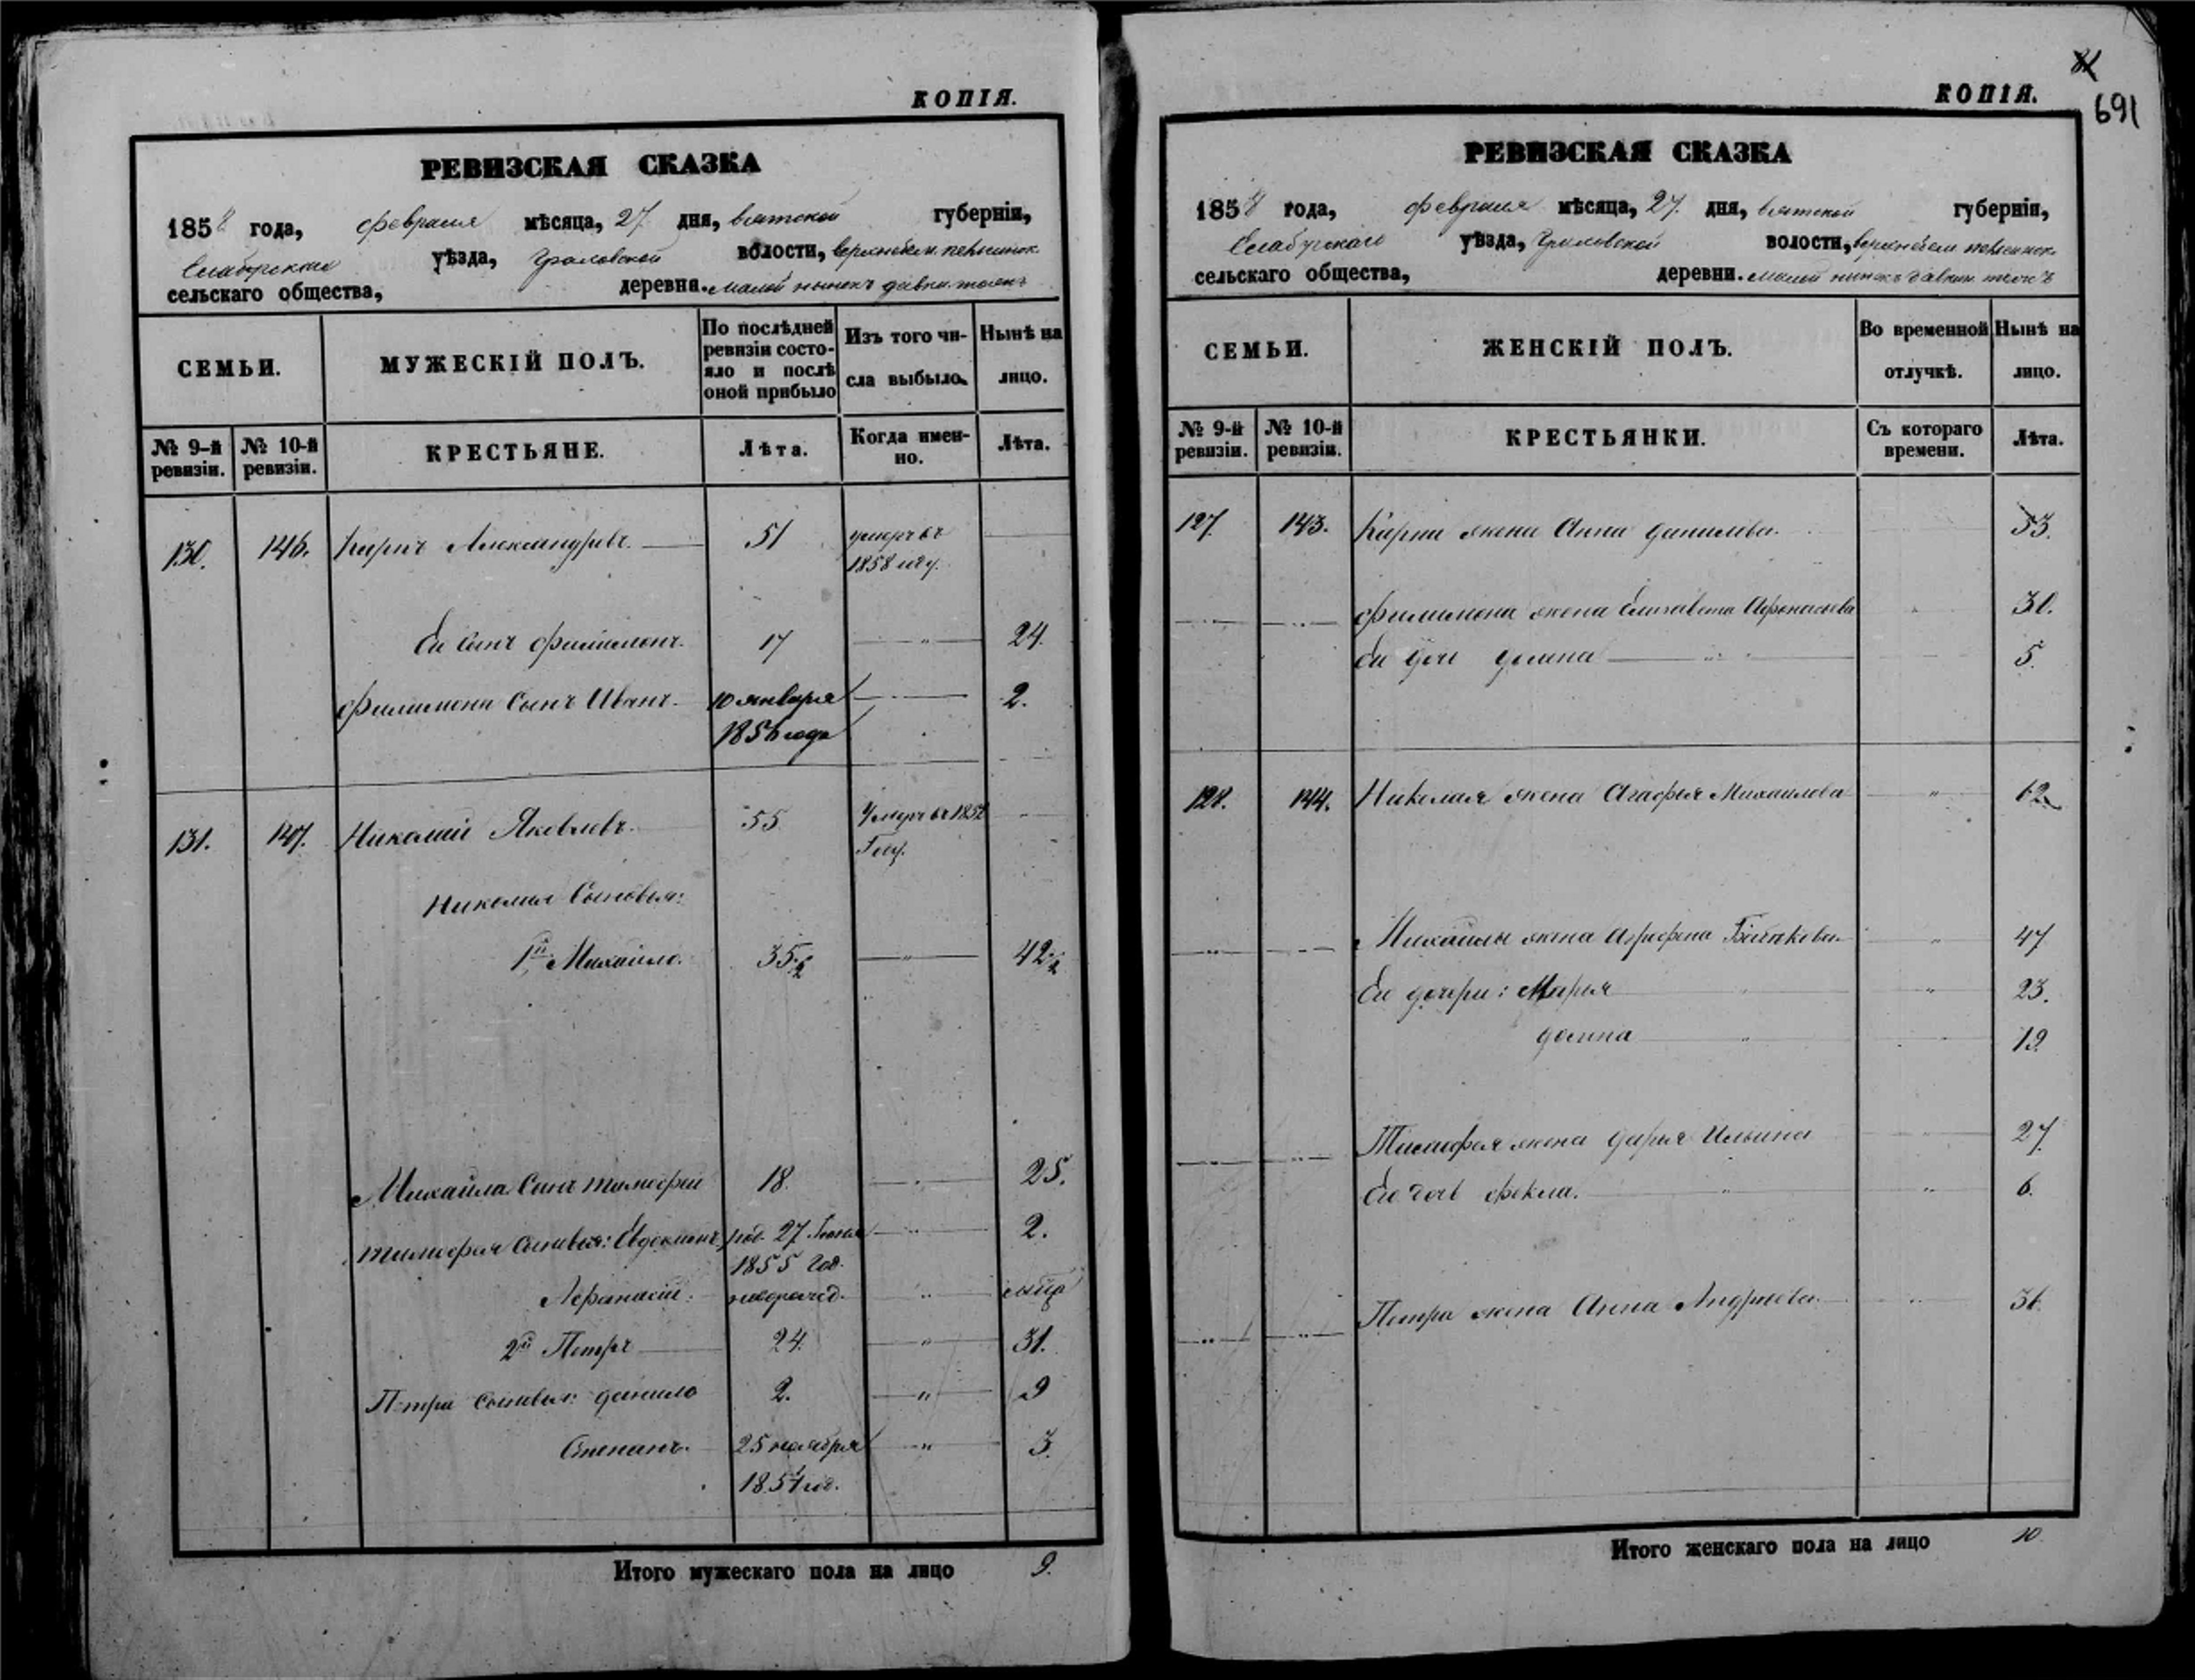 КОПІЯ.
РЕВИЗСКАЯ СКАЗКА
1858 года, февраля мѣсяца, 27 дня, вятской губерніи,
Елабужскаго уѣзда, волости,
сельскаго общества, деревня. малой
СЕМЬИ.
МУЖЕСКІЙ ПОЛЪ.
По послѣдней ревизіи состояло и послѣ оной прибыло
Изъ того числа выбыло.
Нынѣ на лицо.
№ 9-й ревизіи.
№ 10-й ревизіи.
КРЕСТЬЯНЕ.
Лѣта.
Когда именно.
Лѣта.
130. 146. Карпъ Александровъ. 51 умеръ въ
1858 году.
Ея сынъ Филимонъ. 17 " 24.
Филимона Сынъ Иванъ. 10 января 2.
1856 года
131. 147. Николай Яковлевъ. 55 Умеръ въ 1852
Году.
Николая Сыновья:
1й Михайло. 35 ½ " 42 ½
Михайла Сынъ Тимофей 18 25.
Тимофея Сыновья: Евдокимъ род. 27 2.
1855 Год.
Афанасій. новорожд.
2й Петръ 24. " 31.
Петра Сыновья: данило 2. " 9
Степанъ. 25 ноября " 3.
1854 год.
Итого мужескаго пола на лицо 9.
КОПІЯ.
691
РЕВИЗСКАЯ СКАЗКА
1858 года, февраля мѣсяца, 27. дня, вятской губерніи,
Елабужскаго уѣзда, волости,
сельскаго общества, деревни. малой
СЕМЬИ.
ЖЕНСКІЙ ПОЛЪ.
Во временной отлучкѣ.
Нынѣ на лицо.
№ 9-й ревизіи.
№ 10-й ревизіи.
КРЕСТЬЯНКИ.
Съ котораго времени.
Лѣта.
127. 143. Карпа жена Анна данилова. 53.
Филимона жена Елизавета Афонасьева 30.
Ея дочь домна 5.
128. 144. Николая жена Агафья Михаилова " 62
Михайлы жена Агрофена " 47
Ея дочери: Марья " 23.
домна 19
Тимофея жена дарья Ильина 27.
Ея дочь Фекла. " 6.
Петра жена Анна Андреева.
Итого женскаго пола на лицо 10